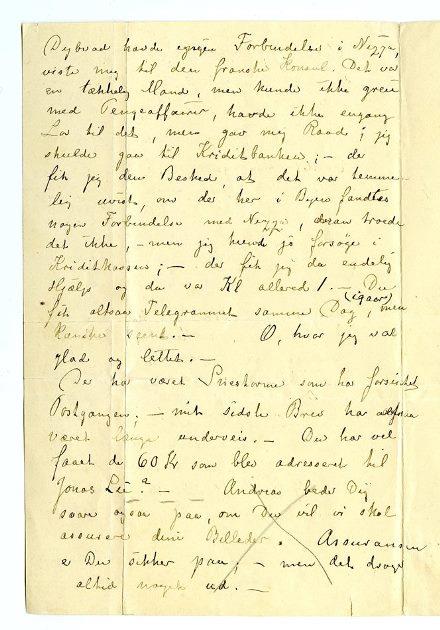 Dybwad havde ingen Forbindelse i Nizza,
viste mig til den franske Konsul. Det var
en tækkelig Mand, men kunde ikke greie
med Pengeaffærer, havde ikke engang
Lov til det, men gav mig Raad; jeg
skulde gaa til Kreditbanken; – der
fik jeg den Besked, at det var temme-
lig uvist, om der her i Byen fandtes
nogen Forbindelse med Nizza, troede
det ikke, – men jeg kunde jo forsøge i
Kreditkassen; – der fik jeg da endelig
Hjælp og da var Kl allered 1. – Du
fik altsaa Telegrammet samme Dag, (igaar) men
kanske sent. – O, hvor jeg var
glad og lettet. –
Der har været Snestorme som har forsinket
Postgangen; – mit sidste Brev har
været længe underveis. – Du har vel
faaet de 60 Kr som blev adresseret til
Jonas Lie? – Andreas beder Dig
svare ogsaa paa, om Du vil vi skal
assurere dine Billeder. Assuransen
er Du sikker paa; – men det drager
altid noget ud. –